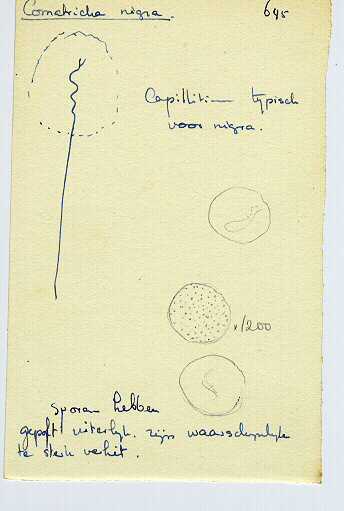 Comatricha nigra. 645
Capillitium typisch
voor nigra.
x1200
Sporen hebben
gepoft uiterlijk. zijn waarschijnlijk
te sterk verhit.